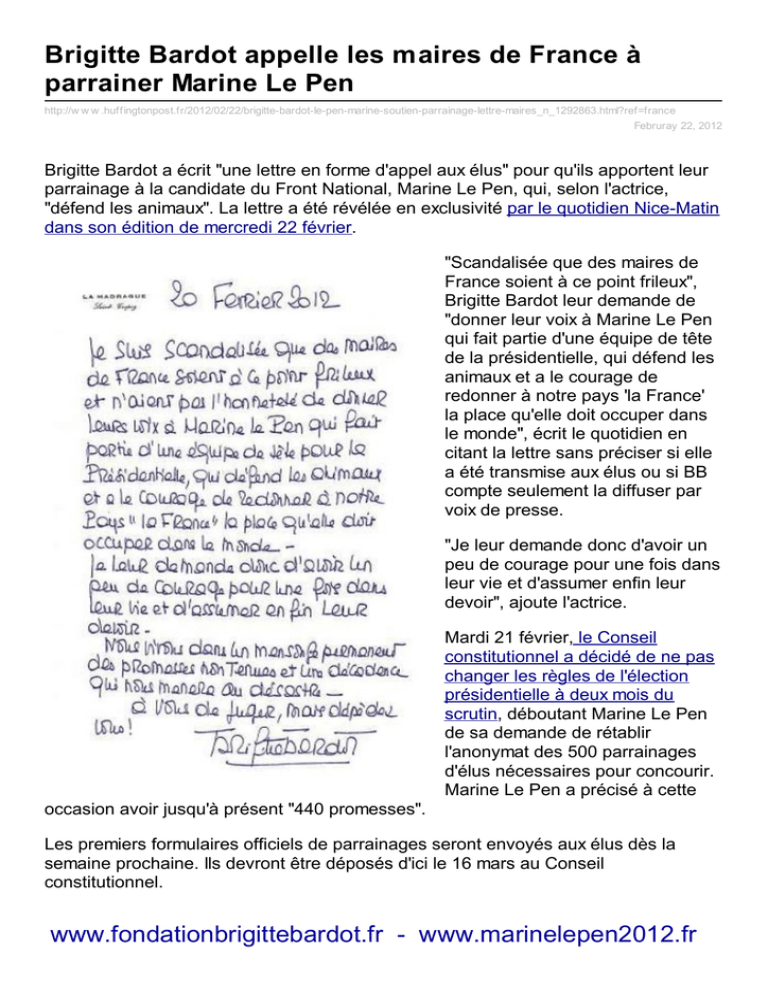 Brigitte Bardot appelle les maires de France à
parrainer Marine Le Pen
http://www.huffingtonpost.fr/2012/02/22/brigitte-bardot-le-pen-marine-soutien-parrainage-lettre-maires_n_1292863.html?ref=france
Februray 22, 2012
Brigitte Bardot a écrit "une lettre en forme d'appel aux élus" pour qu'ils apportent leur
parrainage à la candidate du Front National, Marine Le Pen, qui, selon l'actrice,
"défend les animaux". La lettre a été révélée en exclusivité par le quotidien Nice-Matin
dans son édition de mercredi 22 février.
LA MADRAGUE
Saint Tropez
20 Fevrier 2012
Je suis scandalisée que des maires
de France soient à ce point frileux
et n'aient pas l'honneteté de donner
leurs voix à Marine le Pen qui fait
partie d'une équipe de tête pour la
Présidentielle, qui défend les animaux
et a le courage de redonner à notre
Pays "la France" la place qu'elle doit
occuper dans le monde -
Je leur demande donc d'avoir un
peu de courage pour une fois dans
leur vie et d'assumer en fin leur
devoir -
Nous vivons dans un mensonge permanent
des promesses non tenues et une décadence
qui nous menera au désastre -
à vous de juger, mais dépêchez
vous!
Brigitte Bardot
"Scandalisée que des maires de
France soient à ce point frileux",
Brigitte Bardot leur demande de
"donner leur voix à Marine Le Pen
qui fait partie d'une équipe de tête
de la présidentielle, qui défend les
animaux et a le courage de
redonner à notre pays 'la France'
la place qu'elle doit occuper dans
le monde", écrit le quotidien en
citant la lettre sans préciser si elle
a été transmise aux élus ou si BB
compte seulement la diffuser par
voix de presse.
"Je leur demande donc d'avoir un
peu de courage pour une fois dans
leur vie et d'assumer enfin leur
devoir", ajoute l'actrice.
Mardi 21 février, le Conseil
constitutionnel a décidé de ne pas
changer les règles de l'élection
présidentielle à deux mois du
scrutin, déboutant Marine Le Pen
de sa demande de rétablir
l'anonymat des 500 parrainages
d'élus nécessaires pour concourir.
Marine Le Pen a précisé à cette
occasion avoir jusqu'à présent "440 promesses".
Les premiers formulaires officiels de parrainages seront envoyés aux élus dès la
semaine prochaine. Ils devront être déposés d'ici le 16 mars au Conseil
constitutionnel.
www.fondationbrigittebardot.fr - www.marinelepen2012.fr